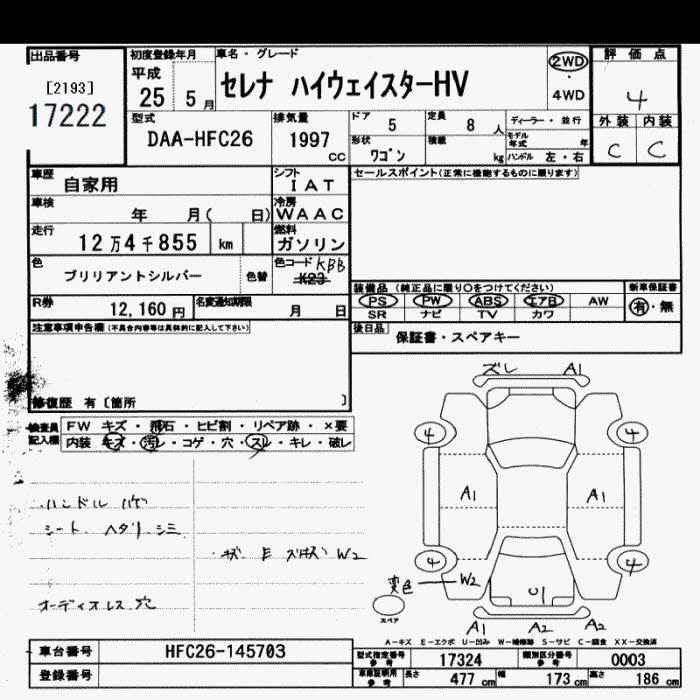 出品番号
[2193]
17222
初度登録年月
平成
25 5 月
車名・グレード
セレナ ハイウェイスターHV
2WD
・
4WD
評価点
4
外装 内装
C C
型式
DAA-HFC26
排気量
1997
CC
ドア
5
定員
8 人
形状
ワゴン
積載
kg
ディーラー・並行
モデル年式 年
ハンドル 左・右
車歴
自家用
シフト
IAT
車検
年 月( 日)
冷房
WAAC
走行
12万4千855 km
燃料
ガソリン
色
ブリリアントシルバー
色替
色コード KBB
K23
R券
12,160円
名変通知期限
月 日
セールスポイント(正常に機能するものに限ります)
装備品 (純正品に限り○をつけてください)
新車保証書
PS PW ABS エアB AW
SR ナビ TV カワ
有・無
後日品
保証書・スペアキー
注意事項申告欄(不具合内容等は具体的に記入して下さい)
修復歴 有〔箇所 〕
検査員記入欄
FW キズ・飛石・ヒビ割・リペア跡・×要
内装 キズ・汚レ・コゲ・穴・スレ・キレ・破レ
ハンドル ハゲ
シート ヘタリ シミ
オーディオレス 穴
W2
ズレ A1
4 4
A1 A1
4 4
変色 W2
U1
スペア
A1 A2 A2
A−キズ E−エクボ U−凹み W−補修跡 S−サビ C−腐食 XX−交換済
車台番号
HFC26-145703
登録番号
型式指定番号
参考
17324
類別区分番号
参考
0003
車庫証明用
参考
長さ 477 cm 幅 173 cm 高さ 186 cm